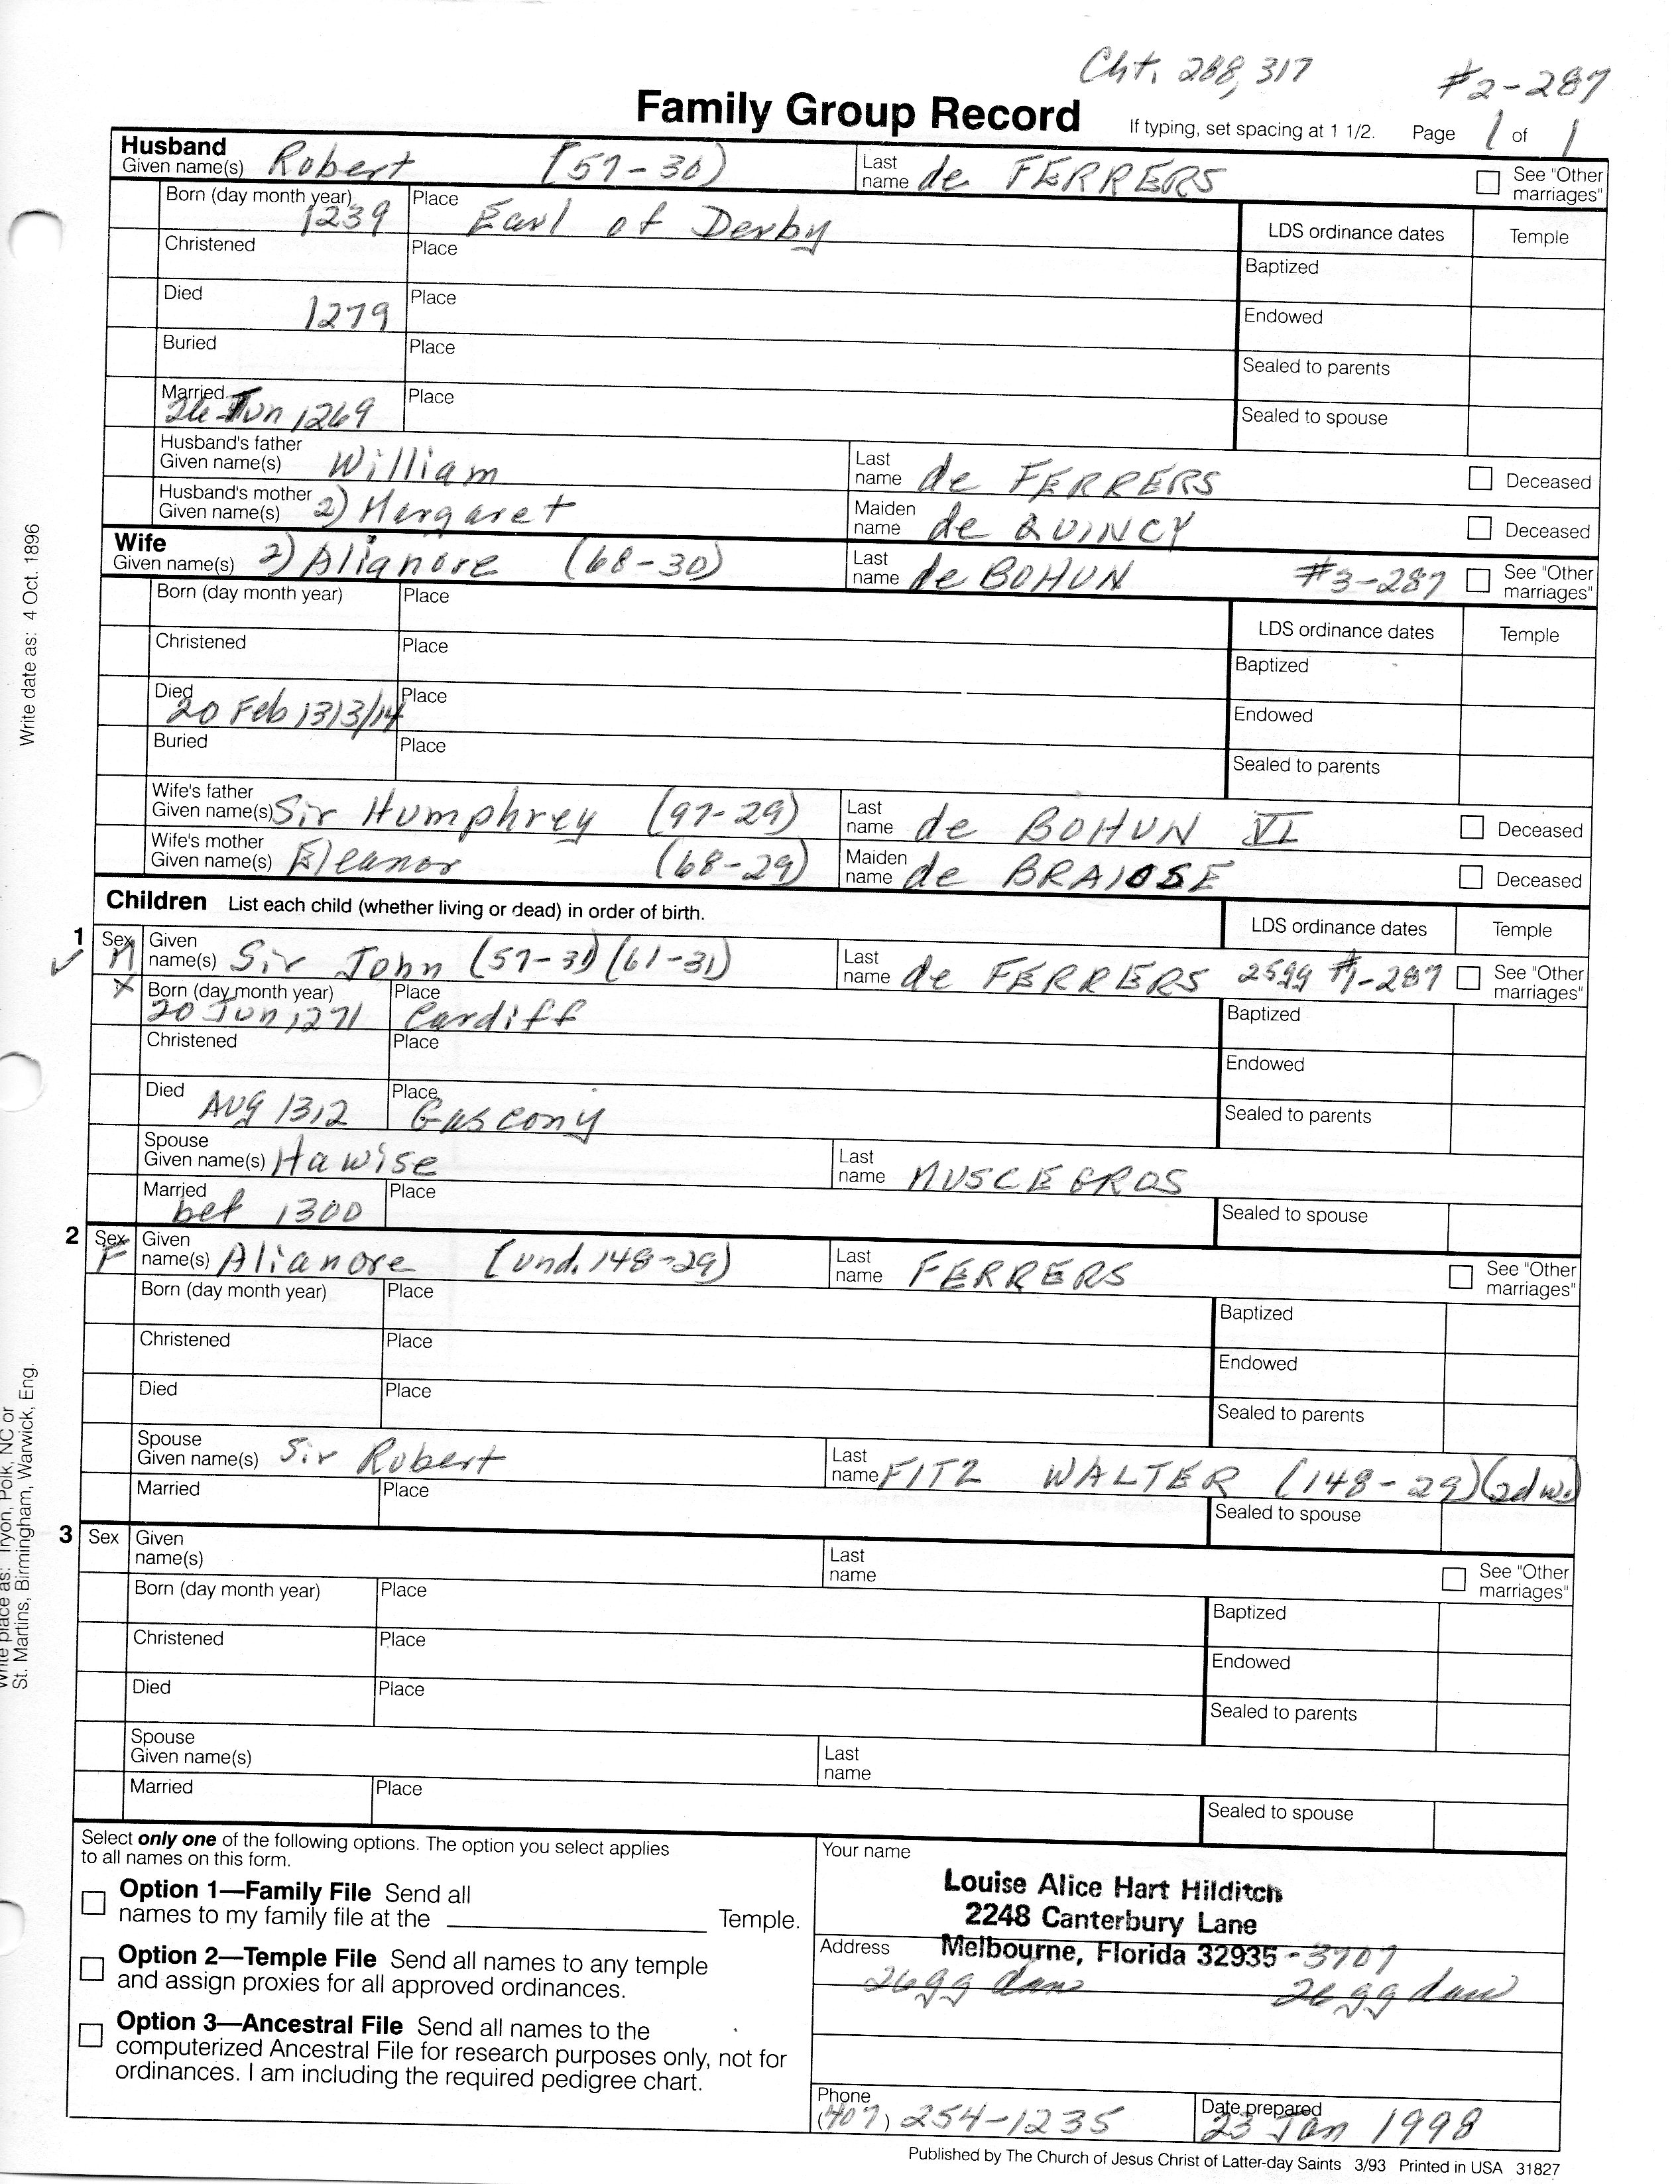 Cht. 288, 317 #2-287
Family Group Record If typing, set spacing at 1 1/2. Page 1 of 1
Husband
Given name(s) Robert (57-30) Last name de FERRERS See "Other marriages"
Born (day month year) 1239 Place Earl of Derby LDS ordinance dates Temple
Christened Place Baptized
Died 1279 Place Endowed
Buried Place Sealed to parents
Married 26 Jun 1269 Place Sealed to spouse
Husband's father Given name(s) William Last name de FERRERS Deceased
Husband's mother Given name(s) 2) Margaret Maiden name de QUINCY Deceased
Wife
Given name(s) 2) Alianore (68-30) Last name de BOHUN #3-287 See "Other marriages"
Born (day month year) Place LDS ordinance dates Temple
Christened Place Baptized
Died 20 Feb 1313/14 Place Endowed
Buried Place Sealed to parents
Wife's father Given name(s) Sir Humphrey (97-29) Last name de BOHUN VI Deceased
Wife's mother Given name(s) Eleanor (68-29) Maiden name de BRAIOSE Deceased
Children List each child (whether living or dead) in order of birth. LDS ordinance dates Temple
1 Sex M Given name(s) Sir John (57-31) (61-31) Last name de FERRERS 25gg #1-287 See "Other marriages"
X Born (day month year) 20 Jun 1271 Place Cardiff Baptized
Christened Place Endowed
Died AUG 1312 Place Gascony Sealed to parents
Spouse Given name(s) Hawise Last name MUSCEGROS
Married bef 1300 Place Sealed to spouse
2 Sex F Given name(s) Alianore (und. 148-29) Last name FERRERS See "Other marriages"
Born (day month year) Place Baptized
Christened Place Endowed
Died Place Sealed to parents
Spouse Given name(s) Sir Robert Last name FITZ WALTER (148-29) (2d w.)
Married Place Sealed to spouse
3 Sex Given name(s) Last name See "Other marriages"
Born (day month year) Place Baptized
Christened Place Endowed
Died Place Sealed to parents
Spouse Given name(s) Last name
Married Place Sealed to spouse
Select only one of the following options. The option you select applies
to all names on this form.
Option 1—Family File Send all
names to my family file at the Temple.
Option 2—Temple File Send all names to any temple
and assign proxies for all approved ordinances.
Option 3—Ancestral File Send all names to the
computerized Ancestral File for research purposes only, not for
ordinances. I am including the required pedigree chart.
Your name
Louise Alice Hart Hilditch
2248 Canterbury Lane
Address Melbourne, Florida 32935-3707
26gg dau 26gg dau
Phone (407) 254-1235 Date prepared 23 Jan 1998
Published by The Church of Jesus Christ of Latter-day Saints 3/93 Printed in USA 31827
Write date as: 4 Oct. 1896
Write place as: Tryon, Polk, NC or
St. Martins, Birmingham, Warwick, Eng.